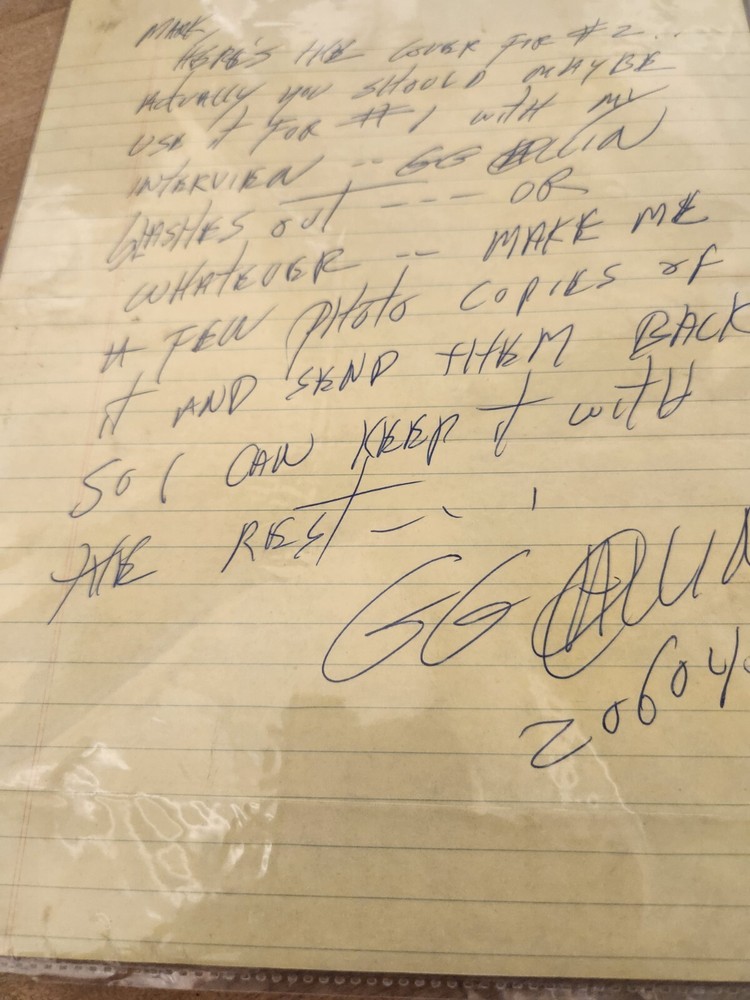 MARK
HERE'S THE COVER FOR #2...
ACTUALLY YOU SHOULD MAYBE
USE IT FOR #1 WITH MY
INTERVIEW -- GG ALLIN
LASHES OUT ---- OR
WHATEVER -- MAKE ME
A FEW PHOTO COPIES OF
IT AND SEND THEM BACK
SO I CAN KEEP IT WITH
THE REST ---
GG ALLIN
20604